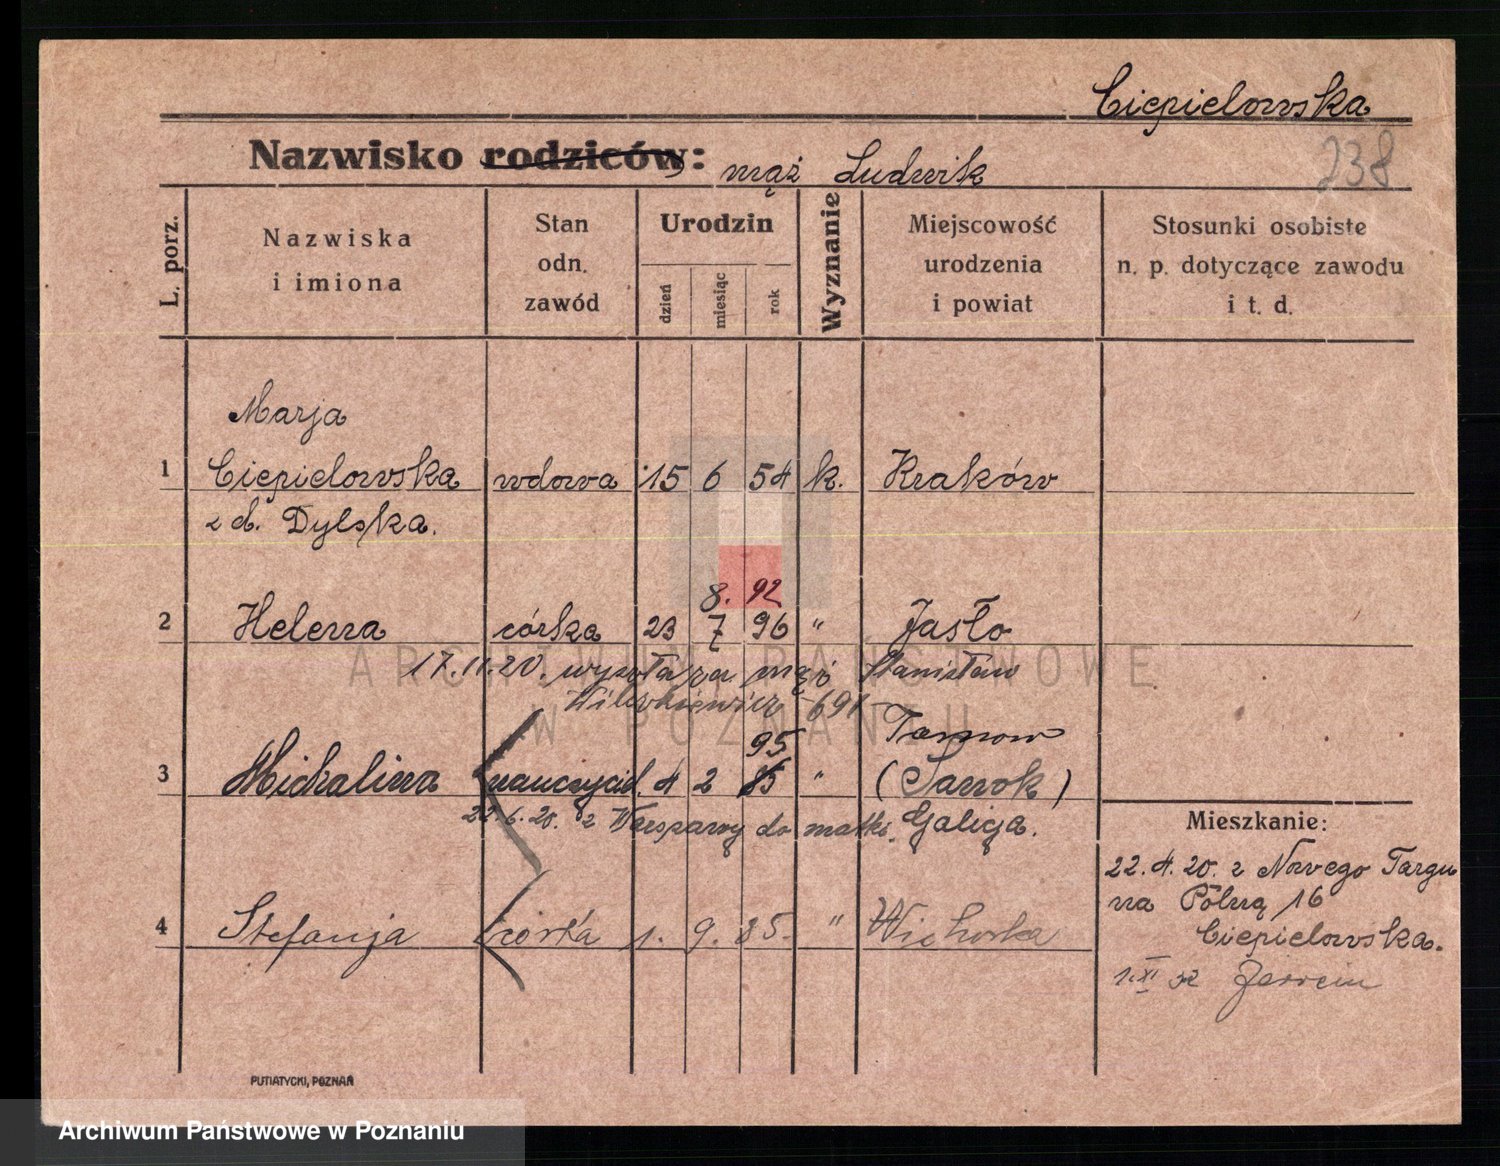 Ciepielowska
238
Nazwisko rodziców: mąż Ludwik
L. porz.
Nazwiska
i imiona
Stan
odn.
zawód
Urodzin
dzień
miesiąc
rok
Wyznanie
Miejscowość
urodzenia
i powiat
Stosunki osobiste
n. p. dotyczące zawodu
i t. d.
Marja
1 Ciepielowska wdowa 15 6 54 k. Kraków
z d. Dylska.
8. 92
2 Helena córka 23 7 96 " Jasło
17.11.20. wyszła za mąż Stanisław
691
95 Tarnow
3 Michalina nauczyciel. 4 2 85 " (Sanok)
22.6.20. z Warszawy do matki. Galicja.
Mieszkanie:
22.4.20. z Nowego Targu
na Polną 16
Ciepielowska.
4 Stefanja córka 1. 9. 85. "
1.XI 32
PUTIATYCKI, POZNAŃ
ARCHIWUM PAŃSTWOWE
W POZNANIU
Archiwum Państwowe w Poznaniu